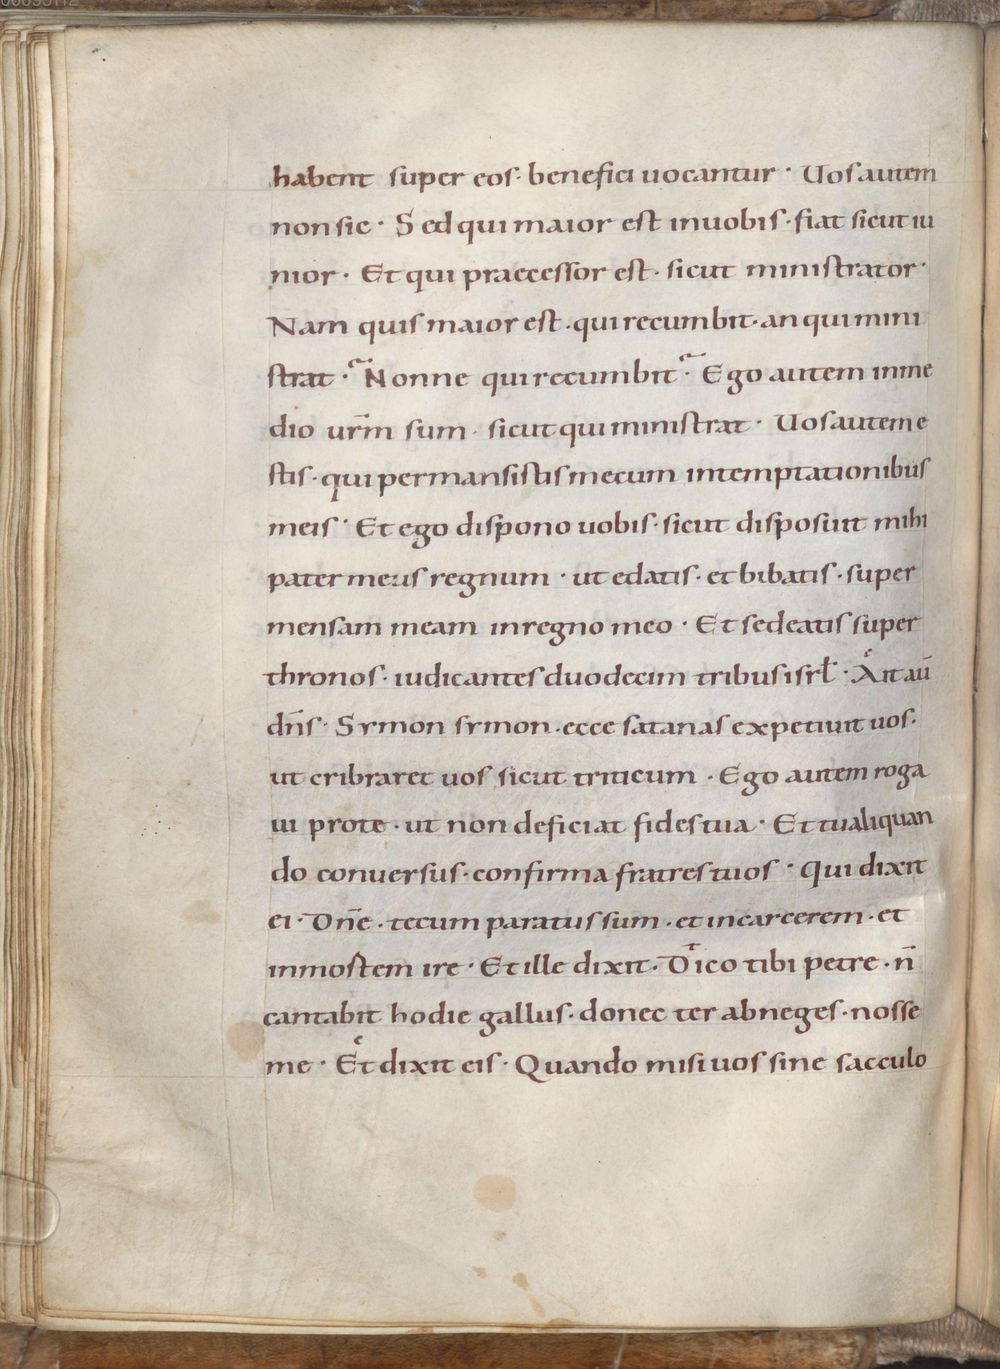 habent super eos· benefici uocantur· Uos autem
non sic· Sed qui maior est in uobis· fiat sicut iu
nior· Et qui praecessor est· sicut ministrator·
Nam quis maior est· qui recumbit· an qui mini
strat· Nonne qui recumbit· Ego autem in me
dio ur̄m sum· sicut qui ministrat· Uos autem e
stis· qui permansistis mecum in temptationibus
meis· Et ego dispono uobis· sicut disposuit mihi
pater meus regnum· ut edatis· et bibatis· super
mensam meam in regno meo· Et sedeatis super
thronos· iudicantes duodecim tribus isrł· Ait aū
dn̄s· Symon symon· ecce satanas expetiuit uos·
ut cribraret uos sicut triticum· Ego autem roga
ui pro te· ut non deficiat fides tua· Et tu aliquan
do conuersus· confirma fratres tuos· Qui dixit
ei· Dn̄e· tecum paratus sum· et in carcerem· et
in mostem ire· Et ille dixit· Dico tibi petre· n̄
cantabit hodie gallus· donec ter abneges· nosse
me· Et dixit eis· Quando misi uos sine sacculo